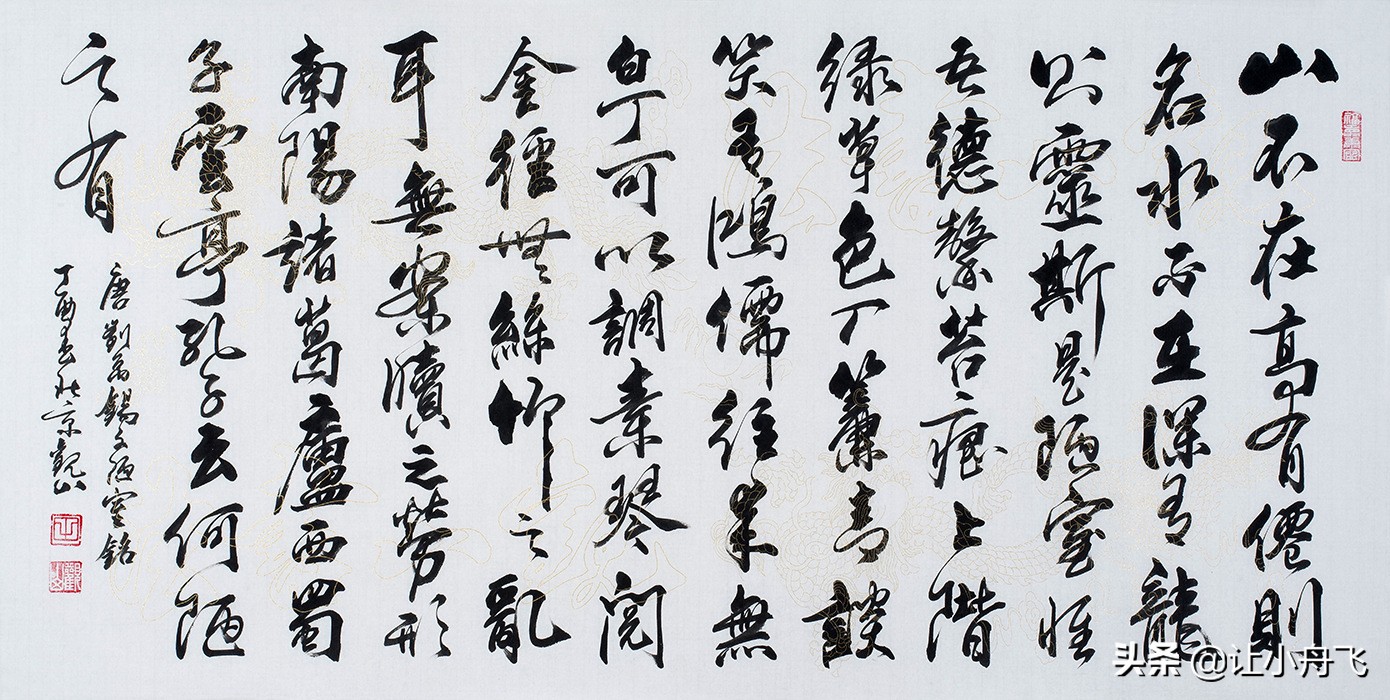 山不在高有僊則
名水不在深有龍
則靈斯是陋室惟
吾德馨苔痕上階
緑草色入簾青談
笑有鴻儒往來無
白丁可以調素琴閱
金經無絲竹之亂
耳無案牘之勞形
南陽諸葛廬西蜀
子雲亭孔子云何陋
之有
唐劉禹錫文陋室銘
丁酉春北京觀山
头条 @让小舟飞